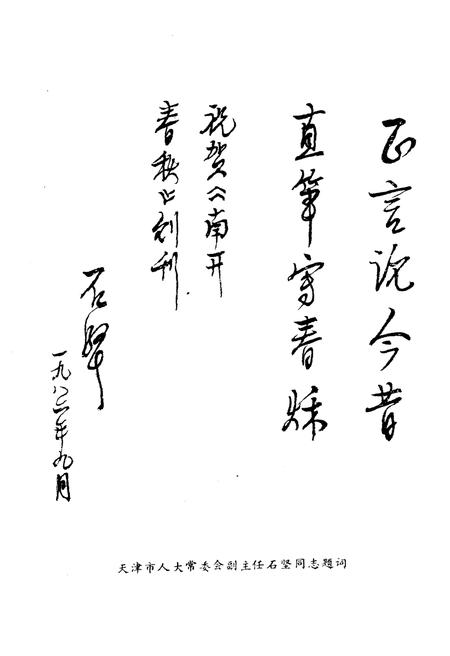 正言说今昔
直笔写春秋
祝贺《南开
春秋》创刊
石坚
一九八三年九月
天津市人大常委会副主任石坚同志题词